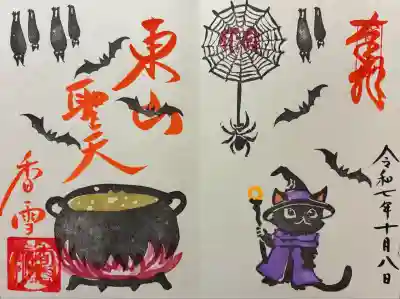 令和七年十月八日
東山
聖天
香雪